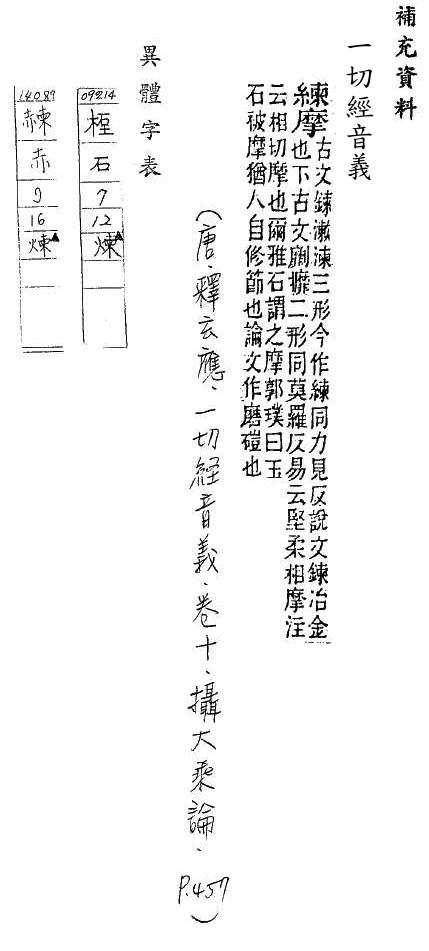 補充資料
一切經音義
練摩古文鍊漱湅三形今作練同力見反說文鍊冶金
也下古文劘攠二形同莫羅反易云堅柔相摩注
云相切摩也爾雅石謂之摩郭璞曰玉
石被摩猶人自修節也論文作磨磑也
(唐.釋玄應.一切經音義.卷十.攝大乘論.
P.457)
異體字表
09214
石
7
12
煉▲
14089
赤
9
16
煉▲